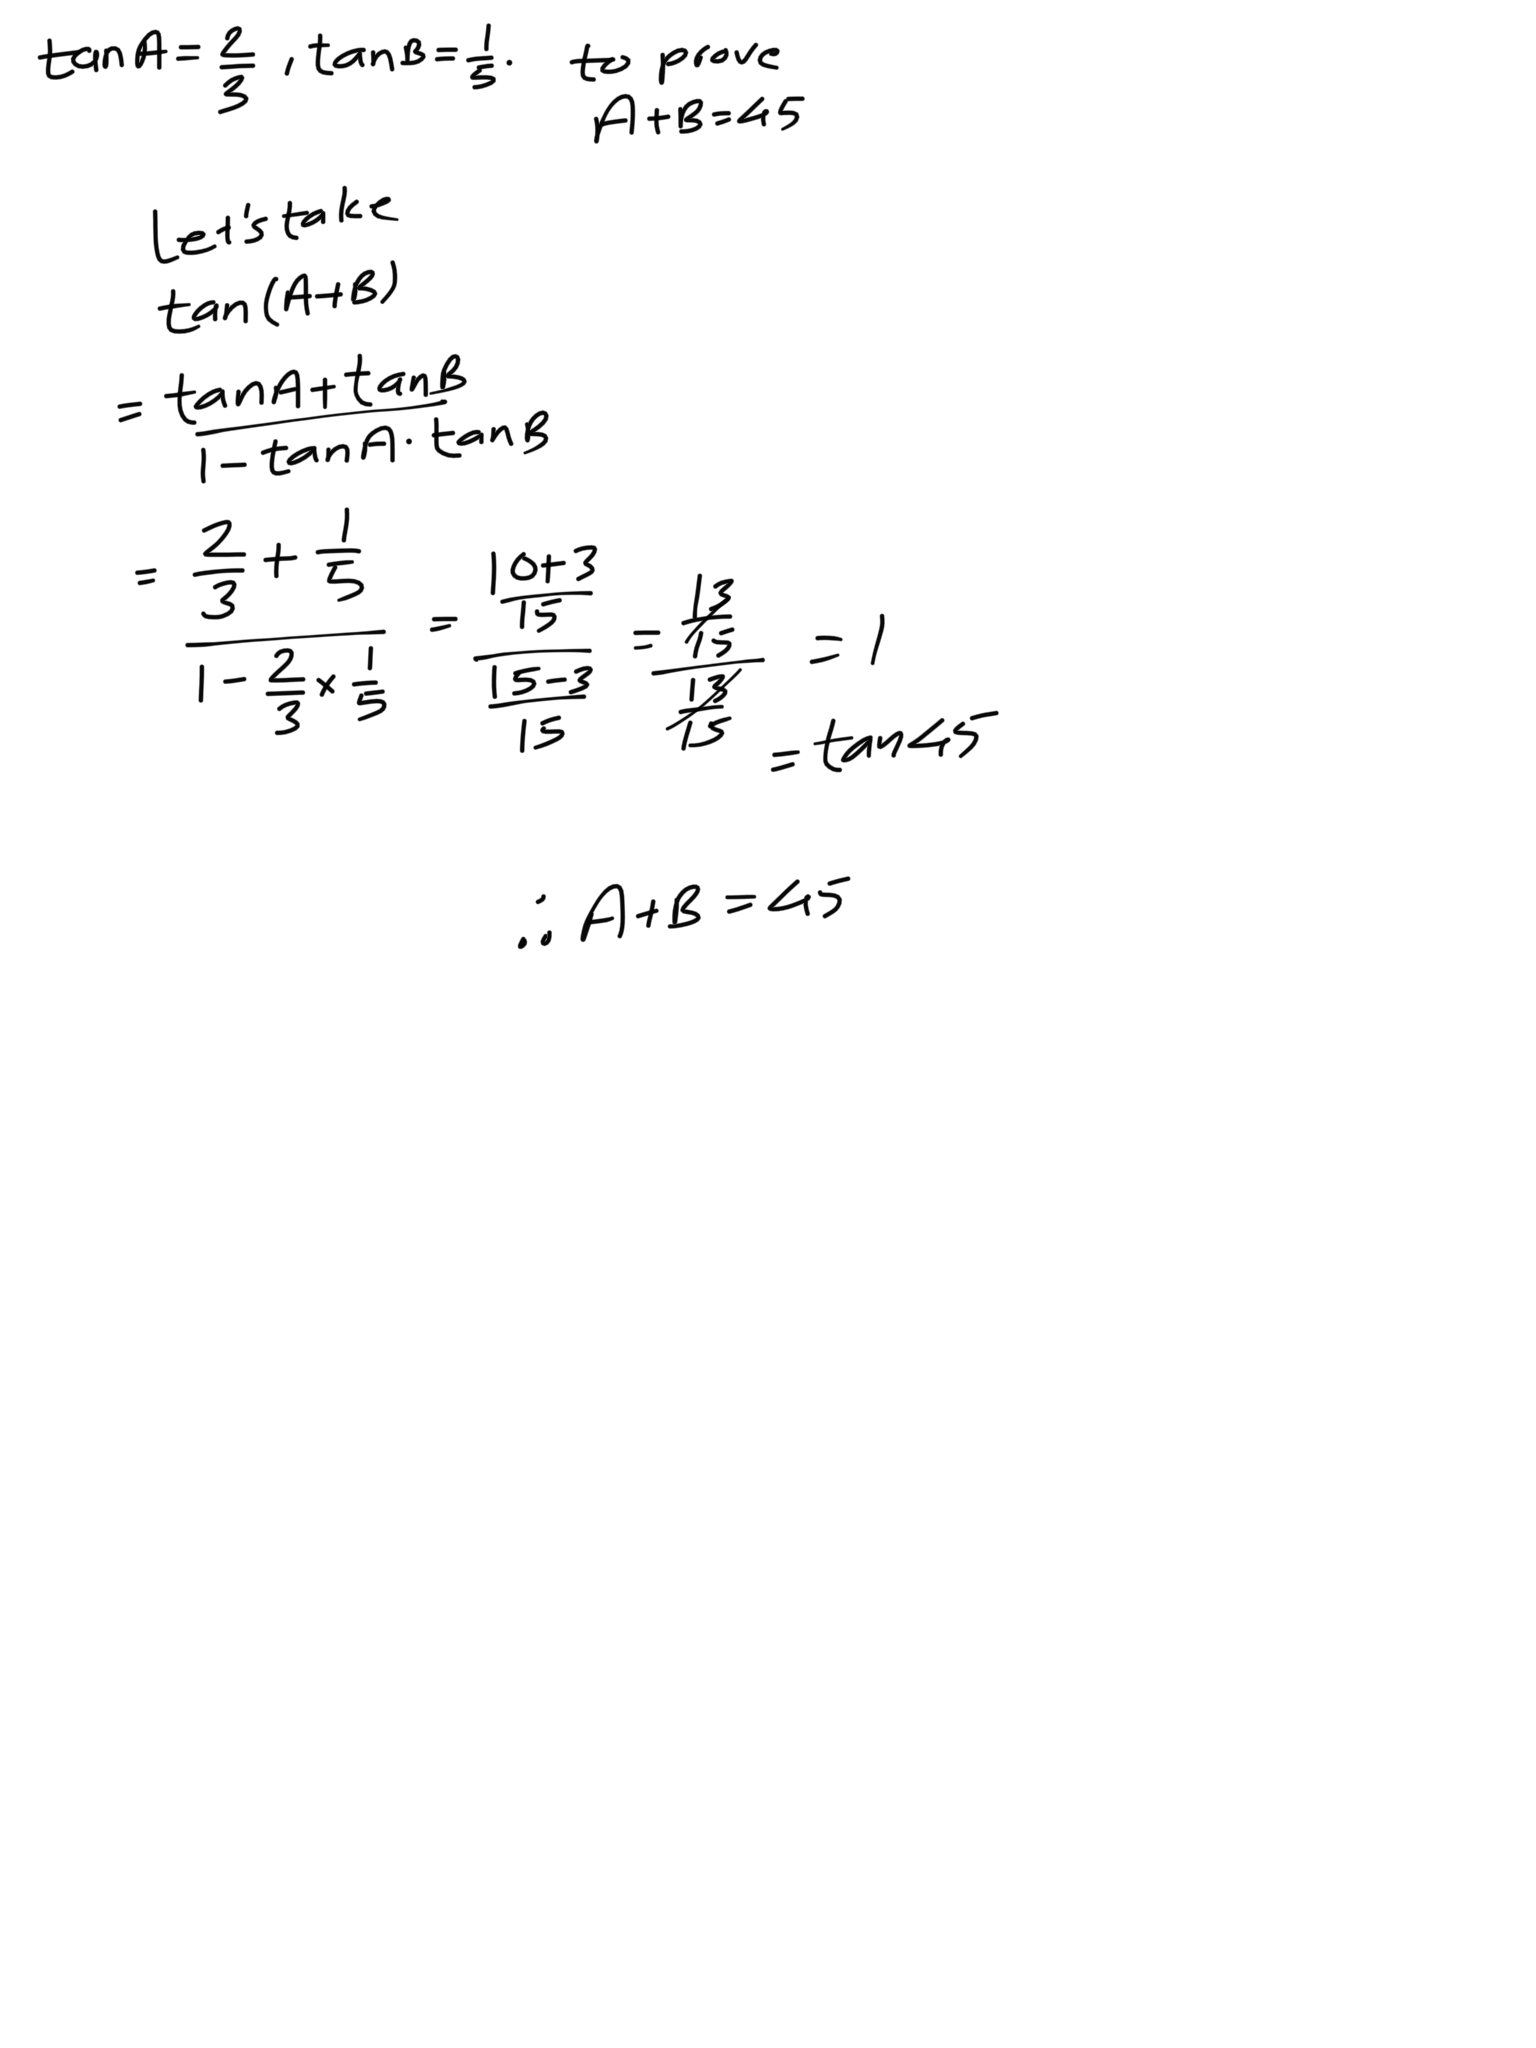 tanA = 2/3 , tanB = 1/5 . to prove
A+B=45
Let's take
tan(A+B)
= tanA+tanB / 1 - tanA · tanB
= 2/3 + 1/5 / 1 - 2/3 × 1/5 = 10+3/15 / 15-3/15 = 13/15 / 13/15 = 1
= tan45
∴ A+B = 45